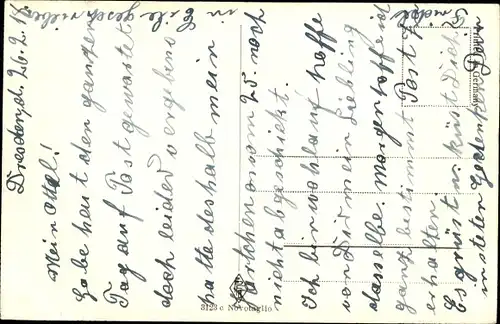 Dresden, d. 26.2.
Mein Ottel!
Habe heut den ganzen
Tag auf Post gewartet
doch leider vergebens
hatte deshalb mein
Kärtchen vom 25. noch
nicht abgeschickt.
Ich bin wohlauf hoffe
von Dir mein Liebling
dasselbe. Morgen hoffend
ganz bestimmt Post z.
erhalten.
Es grüßt u. küsst Dich
in Eile geschrieben
Printed in Germany
3123 c Novotaglio